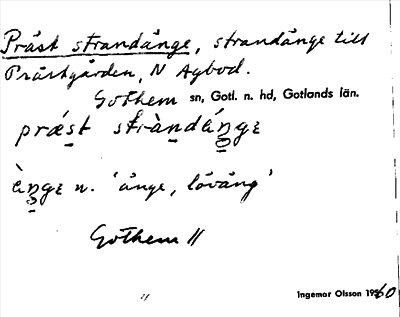 Präst strandänge, strandänge till
Prästgården, N Agbod.
Gothem sn, Gotl. n. hd, Gotlands län.
prǽst stràndǽŋgɛ
ängɛ n. 'änge, löväng'
Gothem 11
Ingemar Olsson 1960